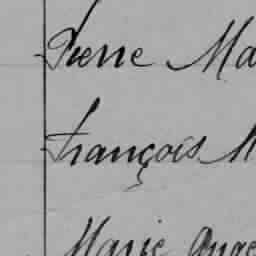 Pierre Ma
François M
Marie Ange